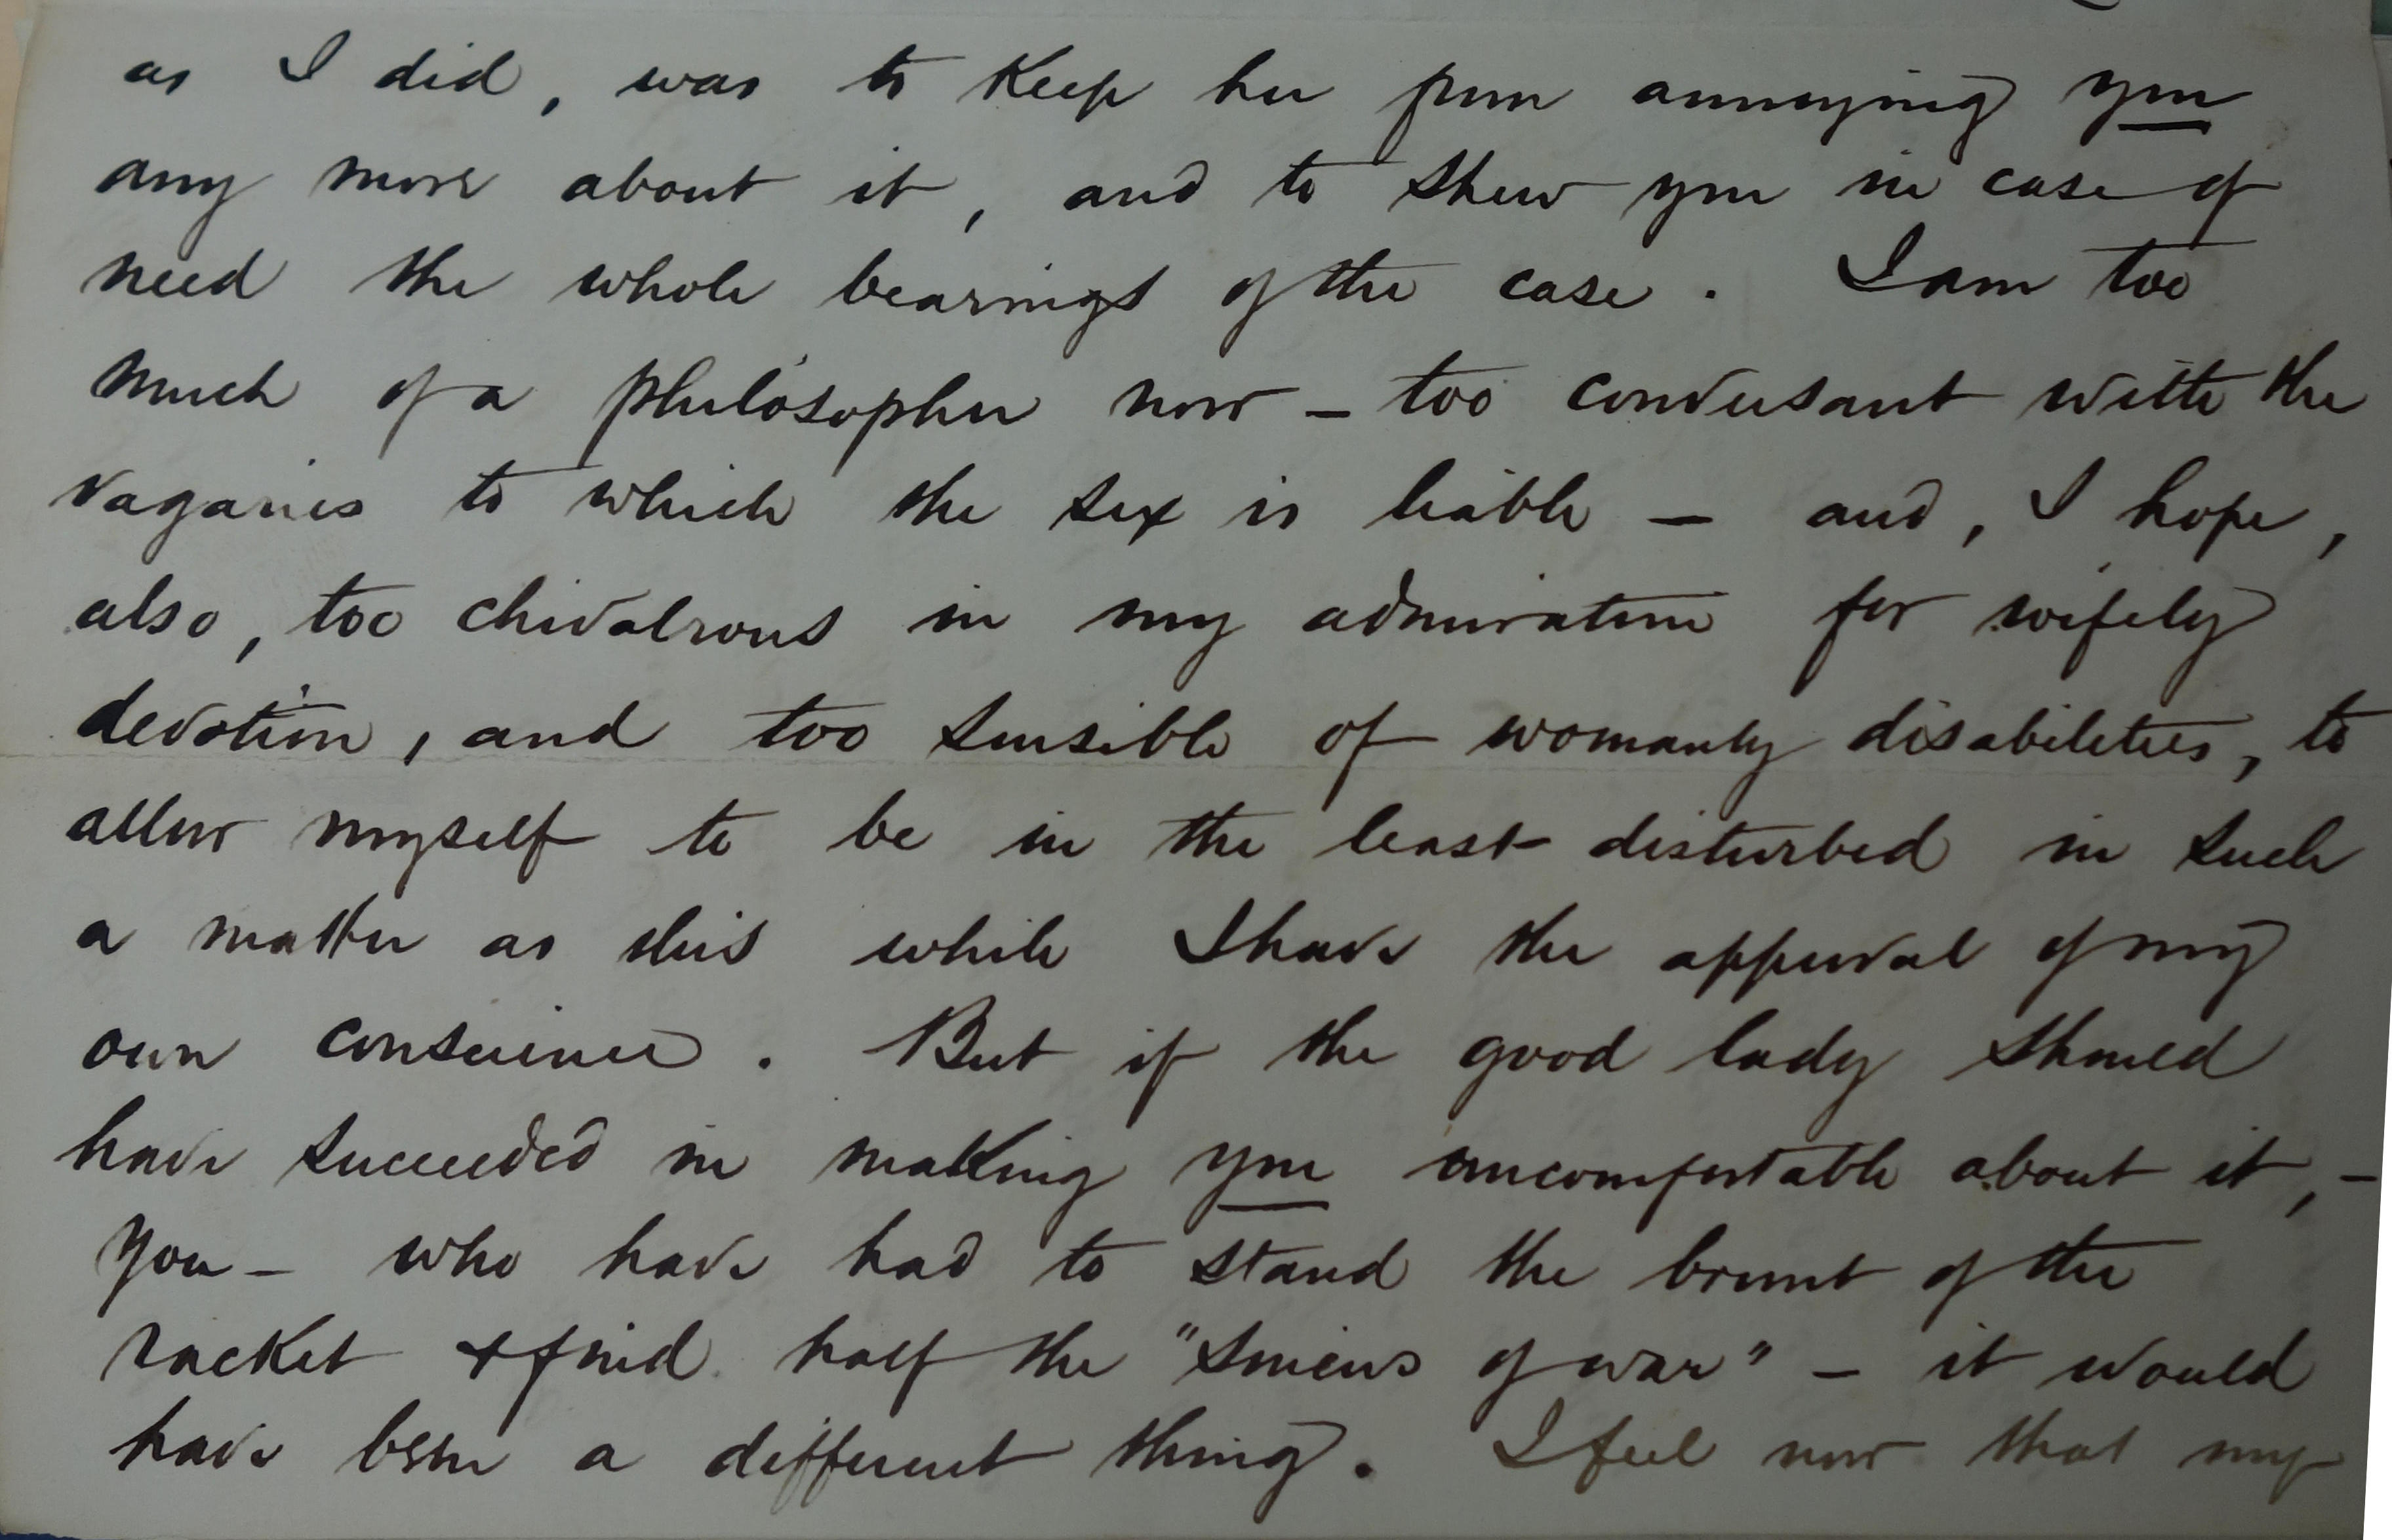 as I did, was to keep her from annoying you
any more about it, and to shew you in case of
need the whole bearings of the case. I am too
much of a philosopher now – too conversant with the
vagaries to which the sex is liable – and, I hope,
also, too chivalrous in my admiration for wifely
devotion, and too sensible of womanly disabilities, to
allow myself to be in the least disturbed in such
a matter as this while I have the approval of my
own conscience. But if the good lady should
have succeeded in making you uncomfortable about it, –
you – who have had to stand the brunt of the
racket & find half the "sinews of war" – it would
have been a different thing. I feel now that my